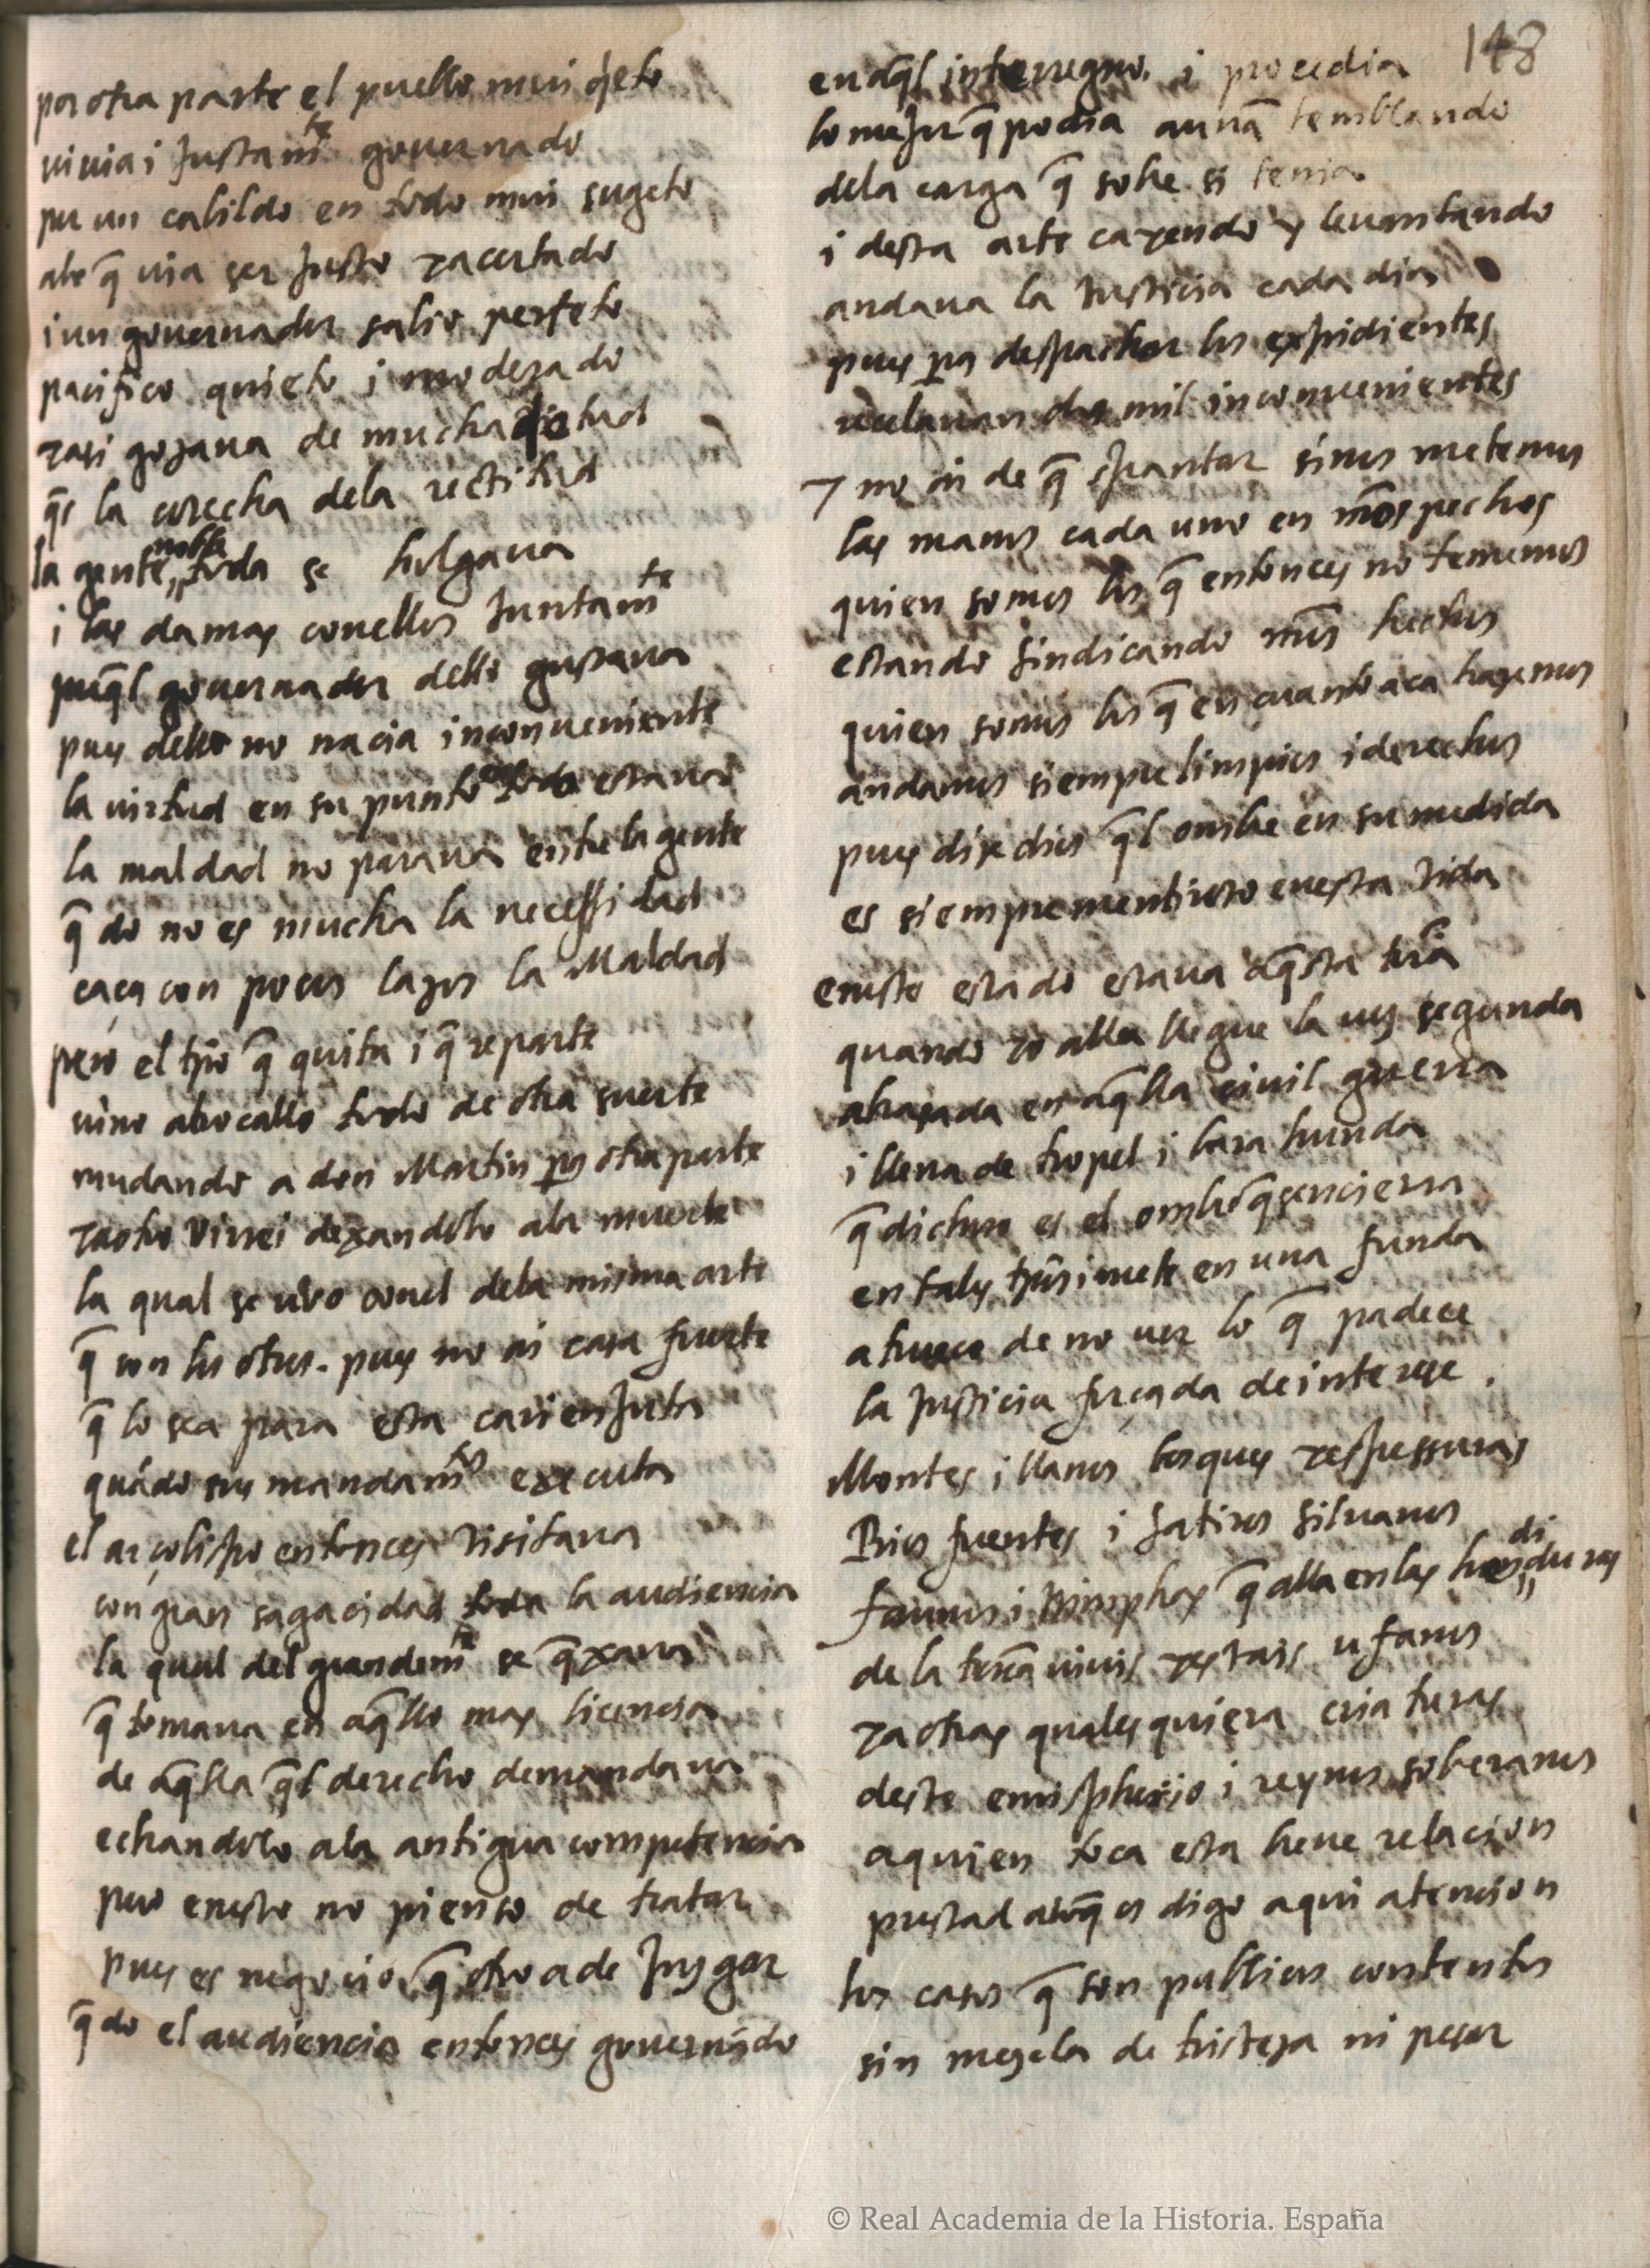 148
por otra parte el pueblo mui q̃eto
viuia i Justam̃te gouernado
por un cabildo en todo mui sugeto
alo q̃ uia ser Justo y acertado
i un gouernador salio perfeto
pacifico quieto i moderado
y asi gozaua de mucha q̃etud
q̃s la cosecha dela rectitud
la gente noble toda se holgaua
i las damas con ellos Juntam̃te
porq̃l gouernador dello gustaua
pues dello no nacia inconueniente
la uirtud en su punto estaua
la maldad no paraua entre la gente
q̃ do no es mucha la necessidad
caça con pocos lazos la Maldad
pero el tp̃o q̃ quita i q̃ reparte
uino a trocallo todo de otra suerte
mudando a don Martin por otra parte
y a otro Virrei dexandolo ala muerte
la qual se uvo con el dela misma arte
q̃ con los otros. pues no ai casa fuerte
q̃ lo sea para esta cari enJuta
quãdo sus mandam̃tos executa
el arçobispo entonces Visitaua
con gran sagacidad toda la audiencia
la qual del grandem̃te se q̃xaua
q̃ tomaua en aq̃llo mas licencia
de aq̃lla q̃l derecho demandaua
echandolo ala antigua competencia
pero en esto no pienso de tratar
pues es negocio q̃ otro a de Juzgar
q̃do el audiencia entonces gouernãdo
en aq̃l interregno. i procedia
lo meJor q̃ podia aunq̃ temblando
dela carga q̃ sobre si tenia
i desta arte cayendo y leuantando
andaua la Justicia cada dia
pues por despachar los expidientes
recelauan dos mil inconuenientes
y no ai de q̃ espantar si nos metemos
las manos cada uno en nr̃os pechos
quien somos los q̃ entonces no tememos
estando sindicando nr̃os hechos
quien somos los q̃ en cuanto aca hazemos
andamos siempre limpios i derechos
pues dixe dios q̃l ombre en su medida
es siempre mentiroso en esta Vida
en este estado estaua aq̃sta trr̃a
quando yo alla llegue la uez segunda
abrasada en aq̃lla ciuil guerra
i llena de tropel i barahunda
q̃ dichoso es el ombre q̃ se encierra
en tales tp̃os i mete en una funda
a trueco de no uer lo q̃ padece
la Justicia forçada de interese.
Montes i llanos bosques y espessuras
Rios fuentes i satiros siluanos
faunos i Nimphas q̃ alla en las hendiduras
de la trr̃a uiuis y estais ufanos
y a otras quales quiera criaturas
deste emispherio i reynos soberanos
a quien toca esta breue relacion
prestad a lo q̃ os digo aqui atencion
los casos q̃ son publicos contentos
sin mezcla de tristeza ni pesar
© Real Academia de la Historia. España